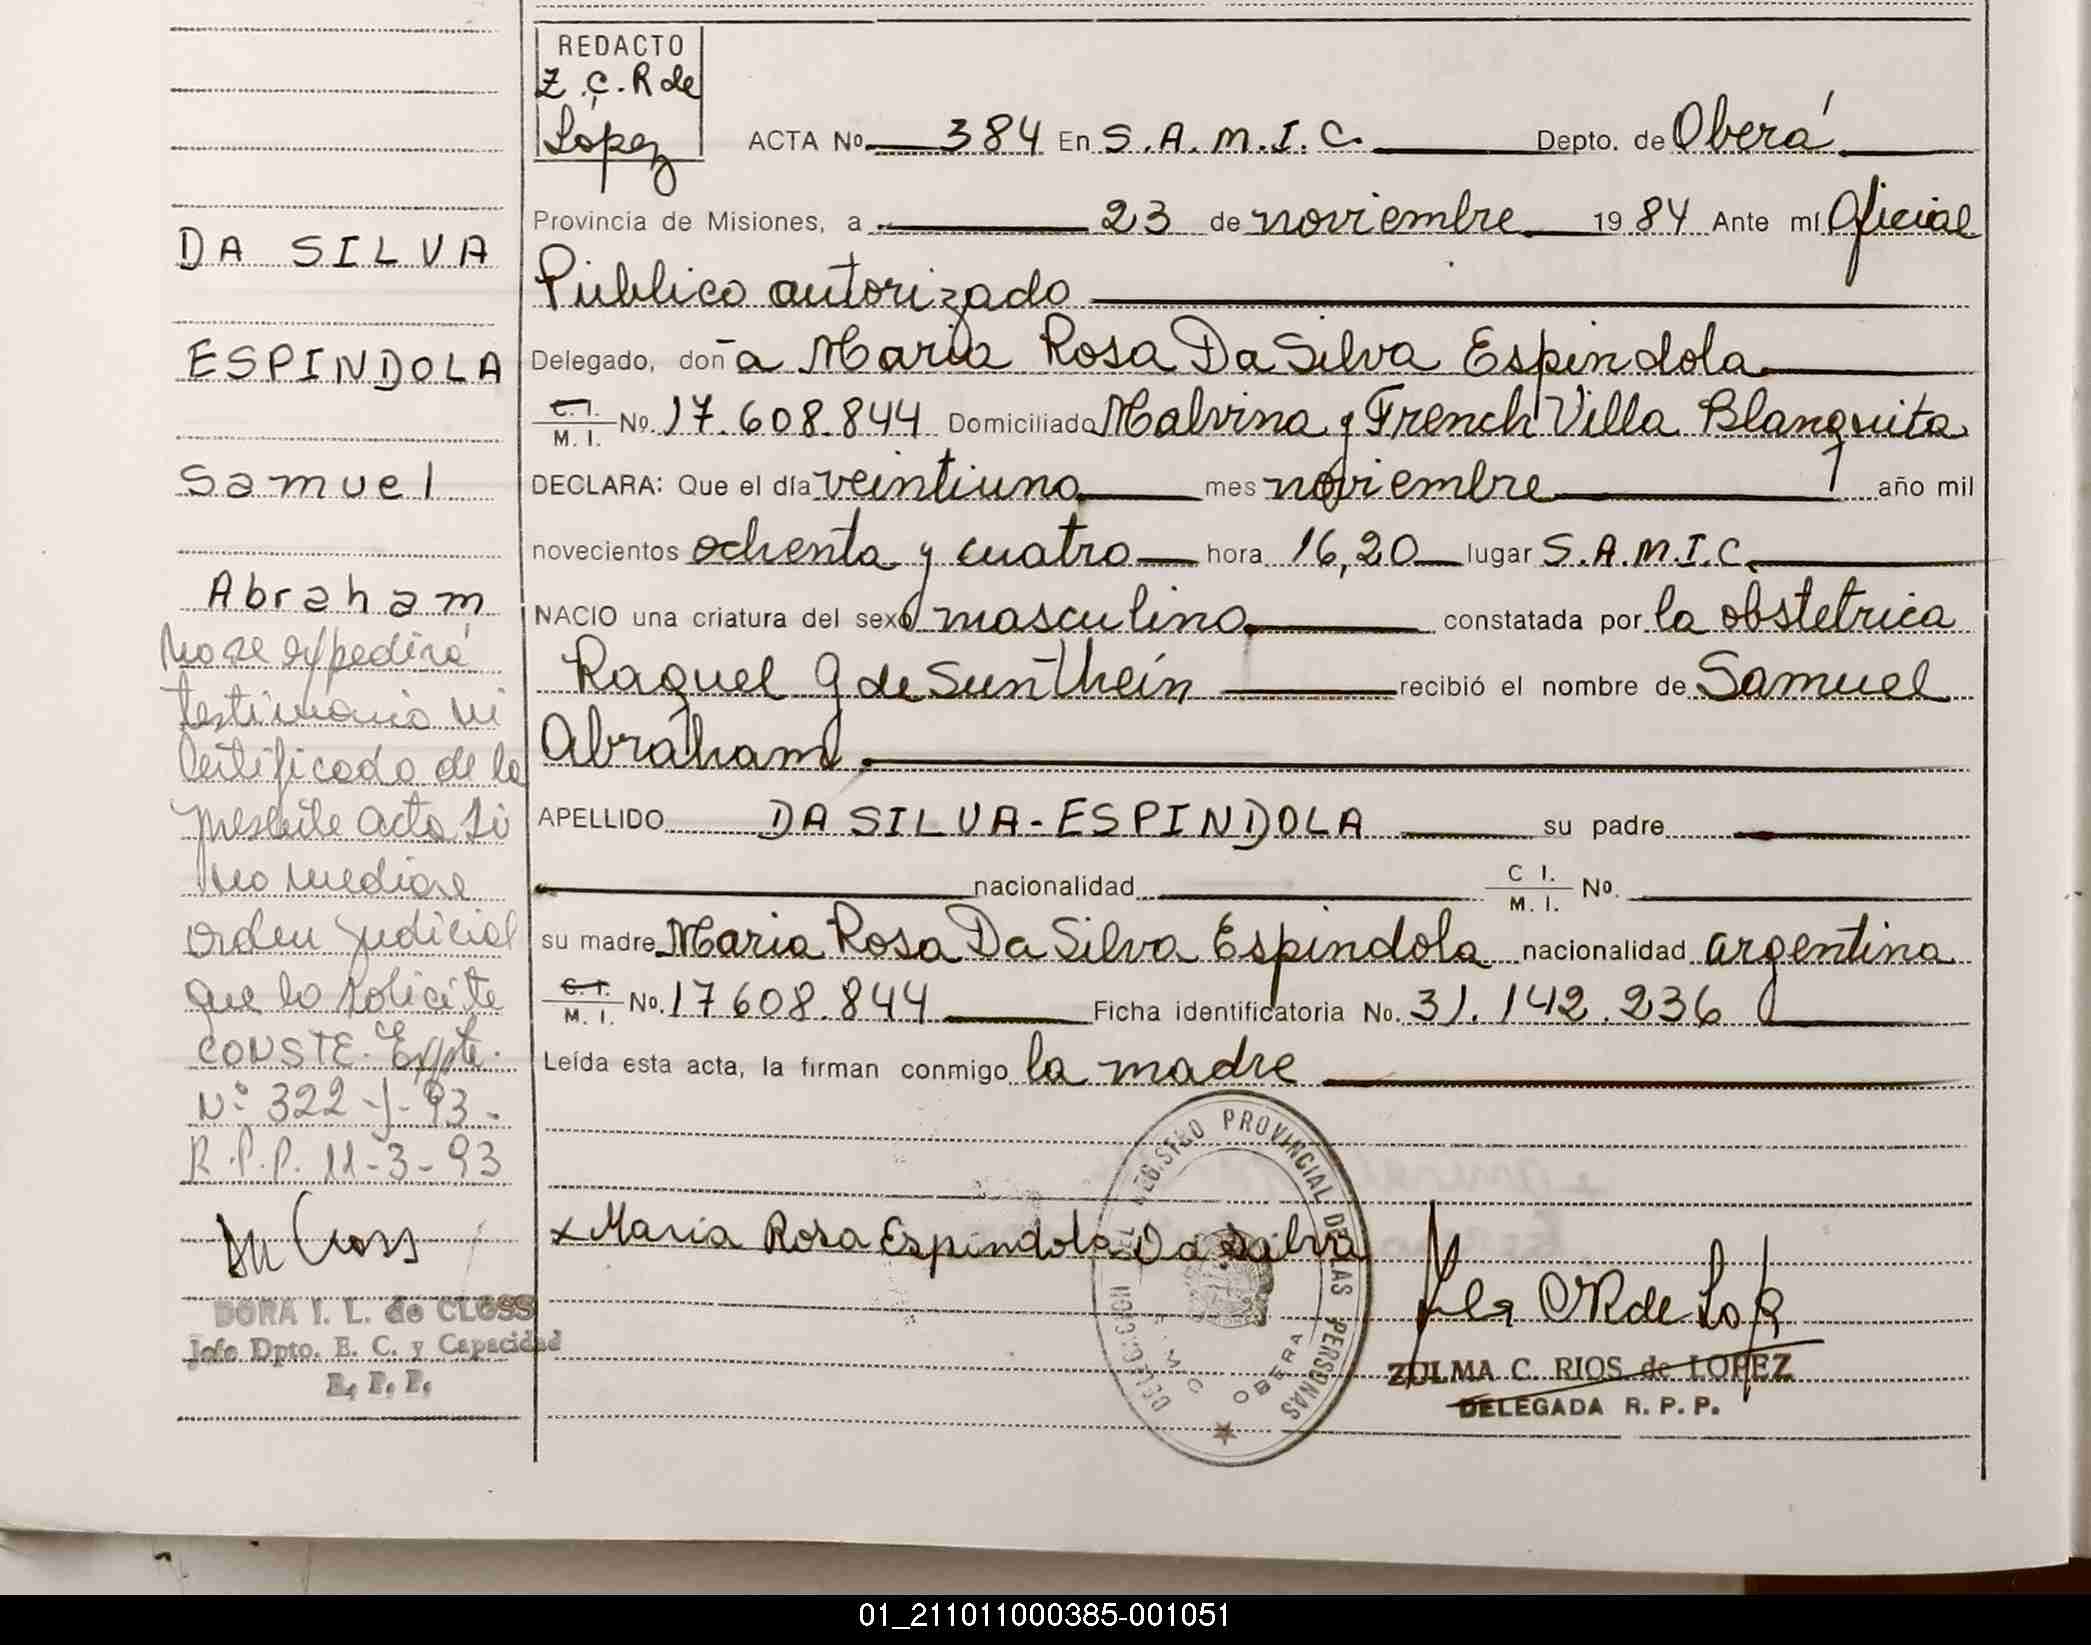 REDACTO
Z. C. R de
Lopez
ACTA No 384 En S.A.M.I.C. Depto. de Oberá
Provincia de Misiones, a 23 de noviembre 1984 Ante mí Oficial
Público autorizado
Delegado, doña Maria Rosa Da Silva Espindola
C. I. / M. I. No. 17.608.844 Domiciliado Malvina y French Villa Blanquita
DECLARA: Que el día veintiuno mes noviembre año mil
novecientos ochenta y cuatro hora 16,20 lugar S.A.M.I.C.
NACIO una criatura del sexo masculino constatada por la obstetrica
Raquel G de Sunthein recibió el nombre de Samuel
Abraham
APELLIDO DA SILVA-ESPINDOLA su padre
nacionalidad C I. / M. I. No.
su madre Maria Rosa Da Silva Espindola nacionalidad argentina
C. I. / M. I. No. 17608.844 Ficha identificatoria No. 31.142.236
Leída esta acta, la firman conmigo la madre
x Maria Rosa Espindola Da Silva
DELEGACION DEL REGISTRO PROVINCIAL DE LAS PERSONAS
OBERA
ZULMA C. RIOS de LOPEZ
DELEGADA R. P. P.
DA SILVA
ESPINDOLA
Samuel
Abraham
No se expedirá
testimonio ni
Certificado de la
presente acta si
no mediare
orden Judicial
que lo solicite
CONSTE. Expte.
N° 322-J-93-
R.P.P. 11-3-93
DORA I. L. de CLOSS
Jefe Dpto. E. C. y Capacidad
R. P. P.
01_211011000385-001051